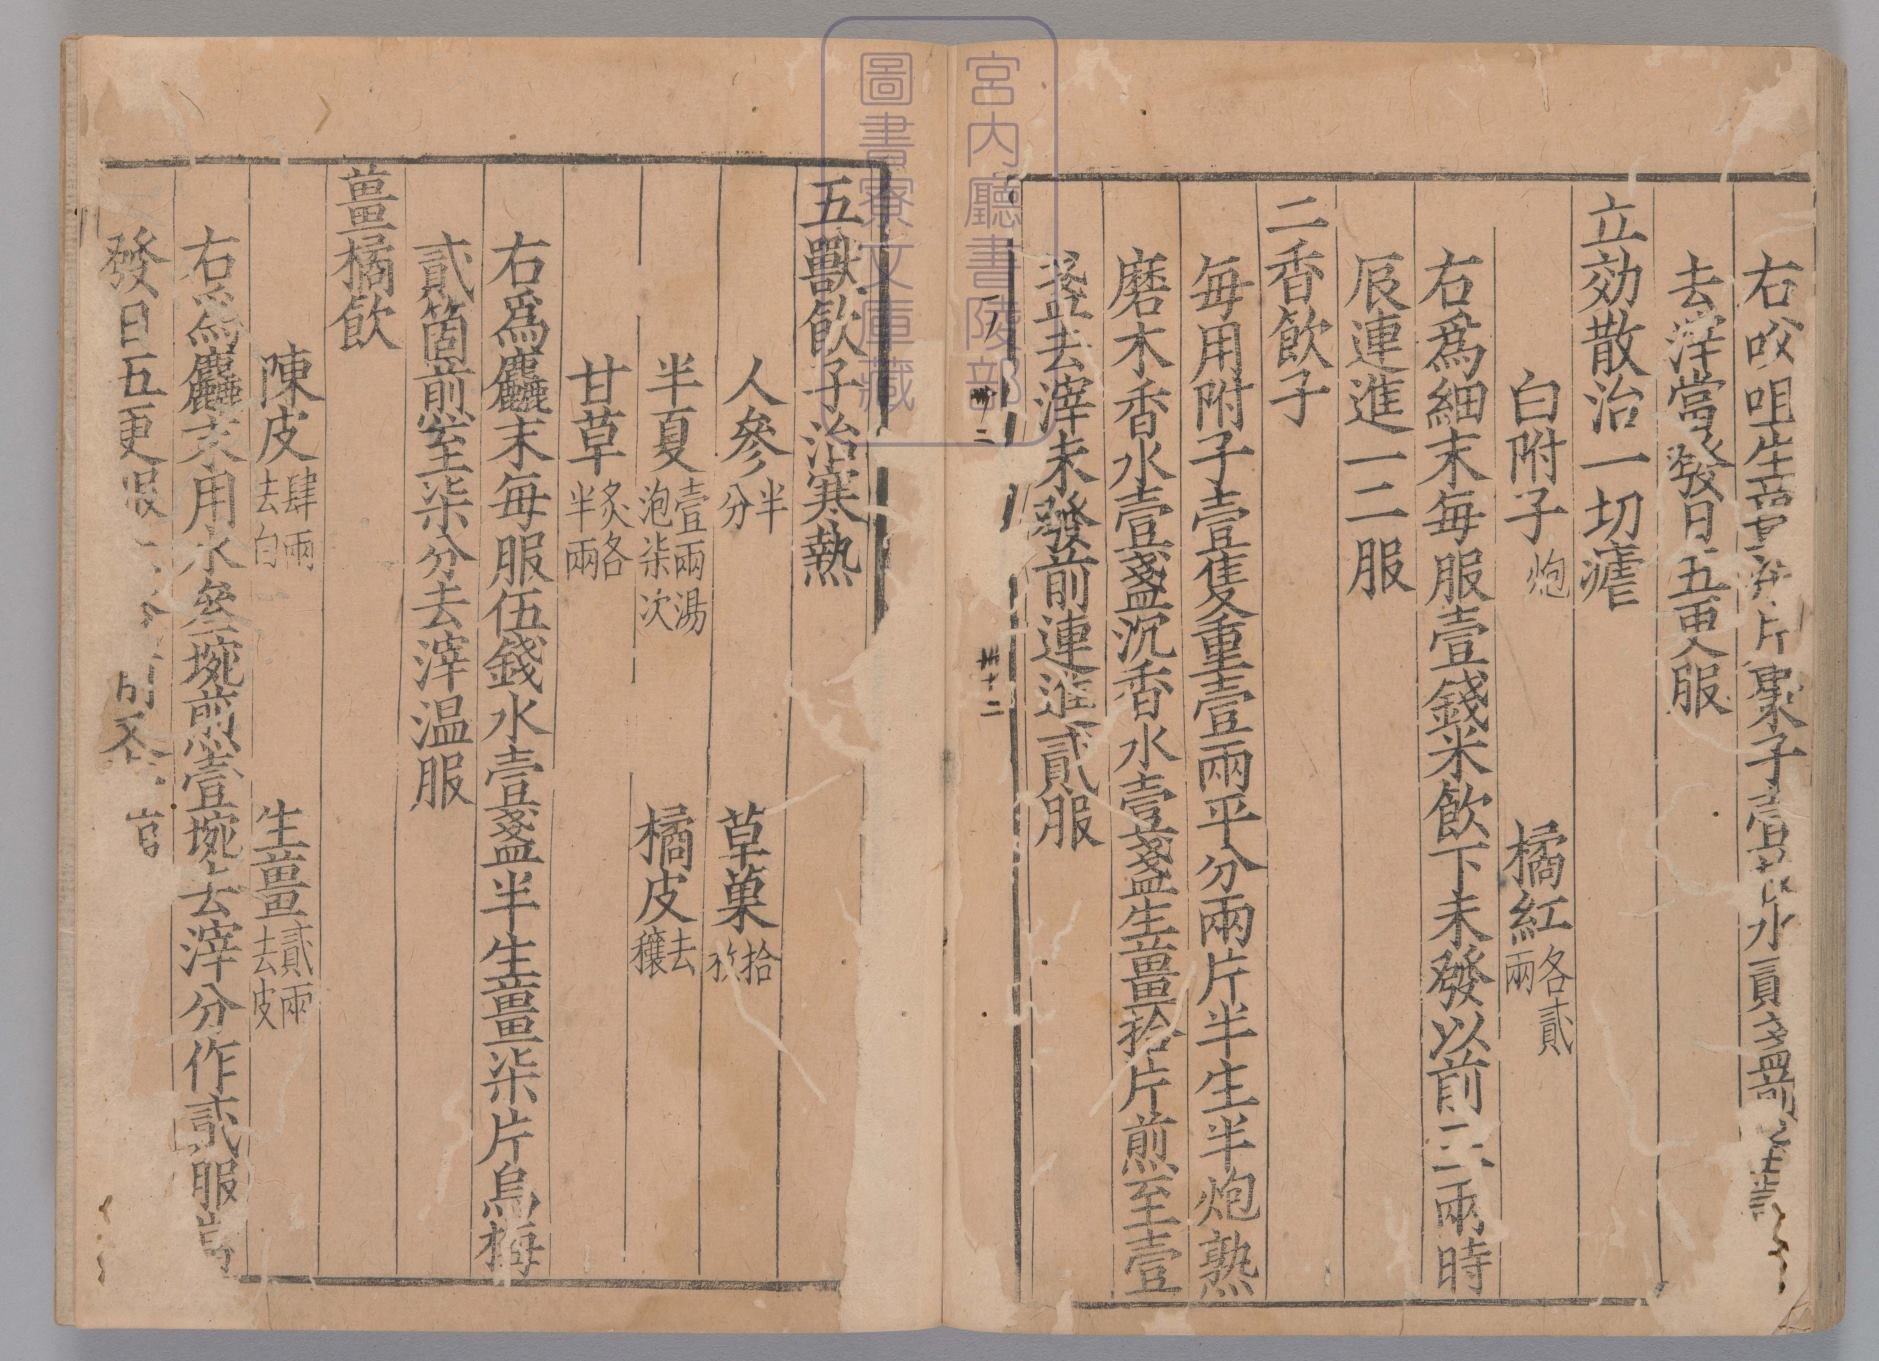 右㕮咀生薑 片棗子壹 水貳盞煎至
去滓當發日五更服
立効散治一切瘧
白附子炮 橘紅各貳兩
右爲細末每服壹錢米飲下未發以前 兩時
辰連進一二服
二香飲子
每用附子壹隻重壹兩平分兩片半生半炮熟
磨木香水壹盞沉香水壹盞生薑拾片煎至壹
盞去滓未發前連進貳服
五獸飲子治寒熱
人參半分 草菓拾枚
半夏壹兩湯泡柒次 橘皮去穰
甘草炙各半兩
右爲麤末每服伍錢水壹盞半生薑柒片烏梅
貳箇煎至柒分去滓温服
薑橘飲
陳皮肆兩去白 生薑貳兩去皮
右爲麤末用水叄埦煎壹埦去滓分作貳服當
發日五更服
宮内廳書陵部
圖書寮文庫藏